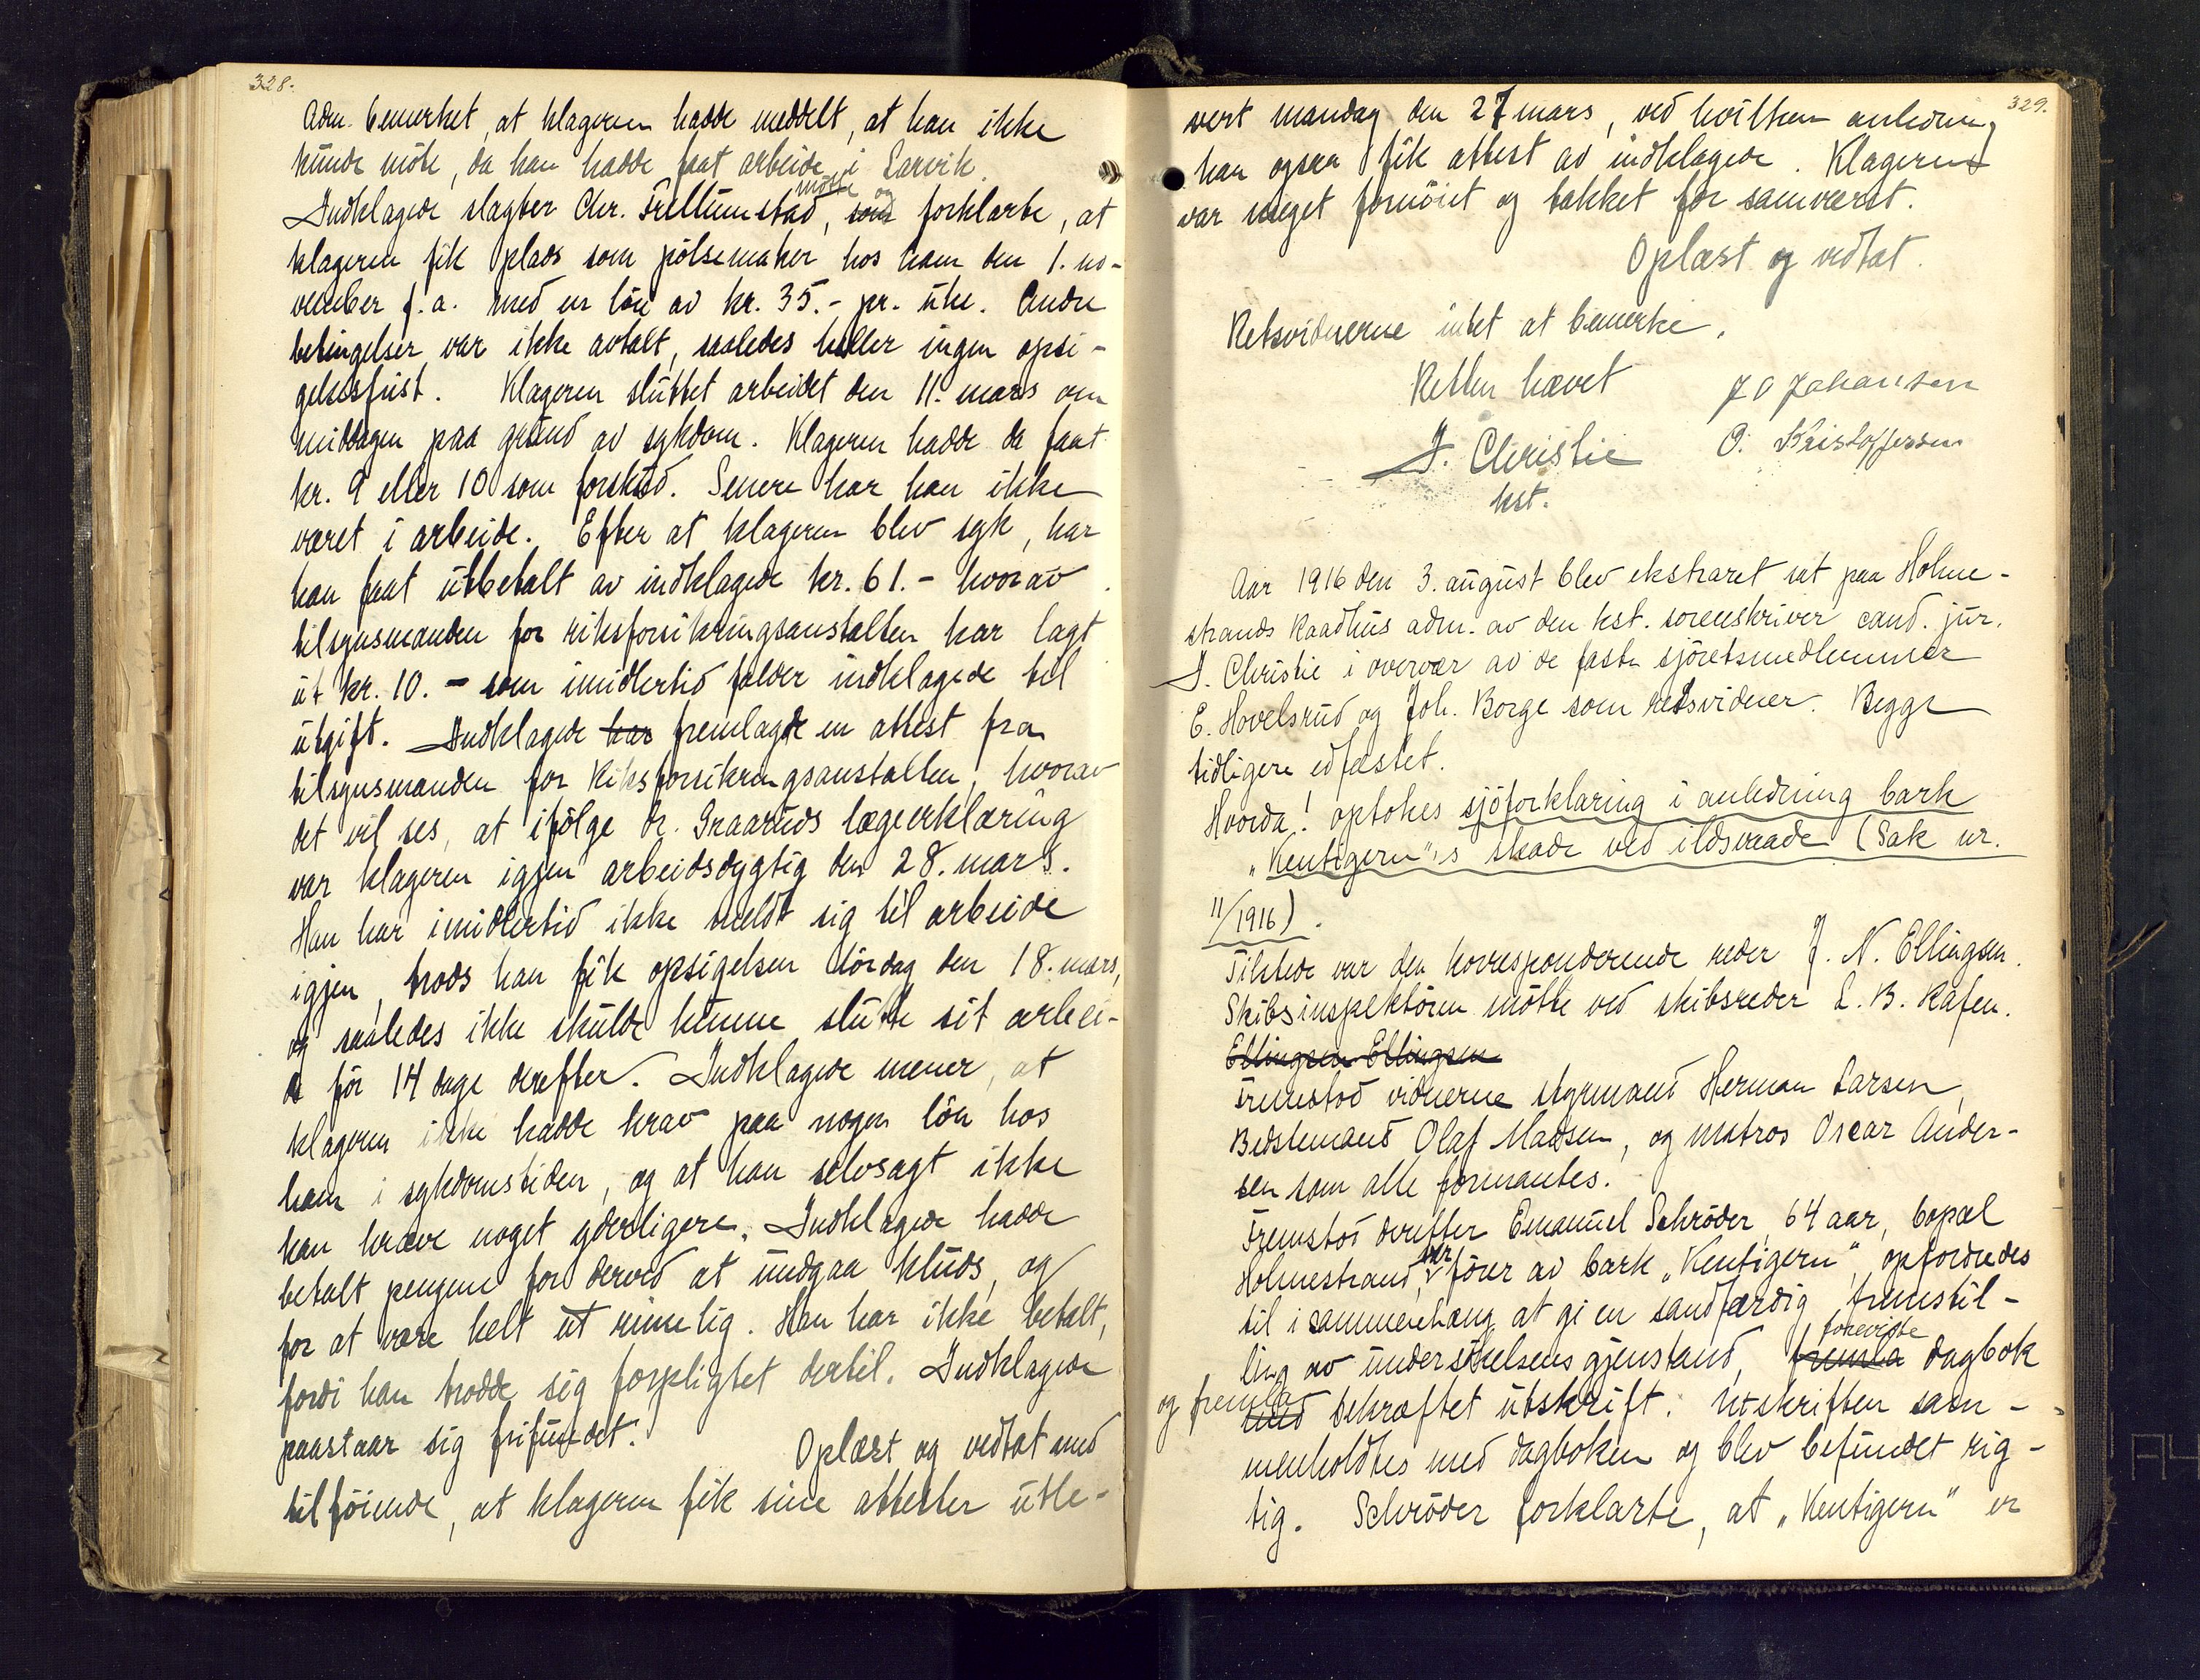 328.
Adm. bemerket, at klageren hadde meddelt, at han ikke
kunde møte, da han hadde faat arbeide i Larvik.
Indklagede slagter Chr. Trellumstad, møtte og som forklarte, at
klageren fik plads som pølsemaker hos ham den 1. no-
vember f.a. med en løn av kr. 35.- pr. uke. Andre
betingelser var ikke avtalt, saaledes heller ingen opsi-
gelsesfrist. Klageren sluttet arbeidet den 11. mars om
middagen paa grund av sykdom. Klageren hadde da faat
kr. 9 eller 10 som forskud. Senere har han ikke
været i arbeide. Efter at klageren blev syk, har
han faat utbetalt av indklagede kr. 61.- hvorav
tilsynsmanden for riksforsikringsanstalten har lagt
ut kr. 10.- som imidlertid falder indklagede til
utgift. Indklagede har fremlagde en attest fra
tilsynsmanden for Riksforsikringsanstalten, hvorav
det vil ses, at ifølge dr. Graaruds lægeerklæring
var klageren igjen arbeidsdygtig den 28. mars.
Han har imidlertid ikke meldt sig til arbeide
igjen, trods han fik opsigelsen lördag den 18. mars,
og saaledes ikke skulde kunne slutte sit arbei-
de før 14 dage derefter. Indklagede mener, at
klageren ikke hadde krav paa nogen løn hos
ham i sykdomstiden, og at han selvsagt ikke
kan kræve noget yderligere. Indklagede hadde
betalt pengene for derved at undgaa kluds, og
for at være helt ut rimelig. Han har ikke betalt,
fordi han trodde sig forpligtet dertil. Indklagede
paastaar sig frifundet.
Oplæst og vedtat med
tilføiende, at klageren fik sine attester utle-
329.
vert mandag den 27 mars, ved hvilken anledning
han ogsaa fik attest av indklagede. Klageren
var meget fornöiet og takket for samværet.
Oplæst og vedtat.
Retsvidnerne intet at bemerke.
Retten hævet
J O Johansen
J. Christie
O. Kristoffersen
kst.
Aar 1916 den 3. august blev ekstraret sat paa Holme-
strands Raadhus adm. av den kst. sorenskriver cand. jur.
J. Christie i overvær av de faste sjöretsmedlemmer
E. Hovelsrud og Joh. Borge som retsvidner. Begge
tidligere edfæstet.
Hvorda! optokes sjøforklaring i anledning bark
„Kentigern"'s skade ved ildsvaade (Sak nr.
11/1916).
Tilstede var den korresponderende reder J. N. Ellingsen.
Skibsinspektören møtte ved skibsreder L. B. Rafen.
Ellingsen Ellingsen
Fremstod vidnerne styrmand Herman Larsen,
Bedstemand Olaf Madsen, og matros Oscar Ander-
sen som alle formantes.
Fremstod derefter Emanuel Schrøder, 64 aar, bopæl
Holmestrand, var förer av bark „Kentigern", opfordredes
til i sammenhæng at gi en sandfærdig fremstil-
ling av undersökelsens gjenstand, foreviste fremla dagbok
og fremla med bekræftet utskrift. Utskriften sam-
menholdtes med dagboken og blev befundet rig-
tig. Schrøder forklarte, at „Kentigern" er